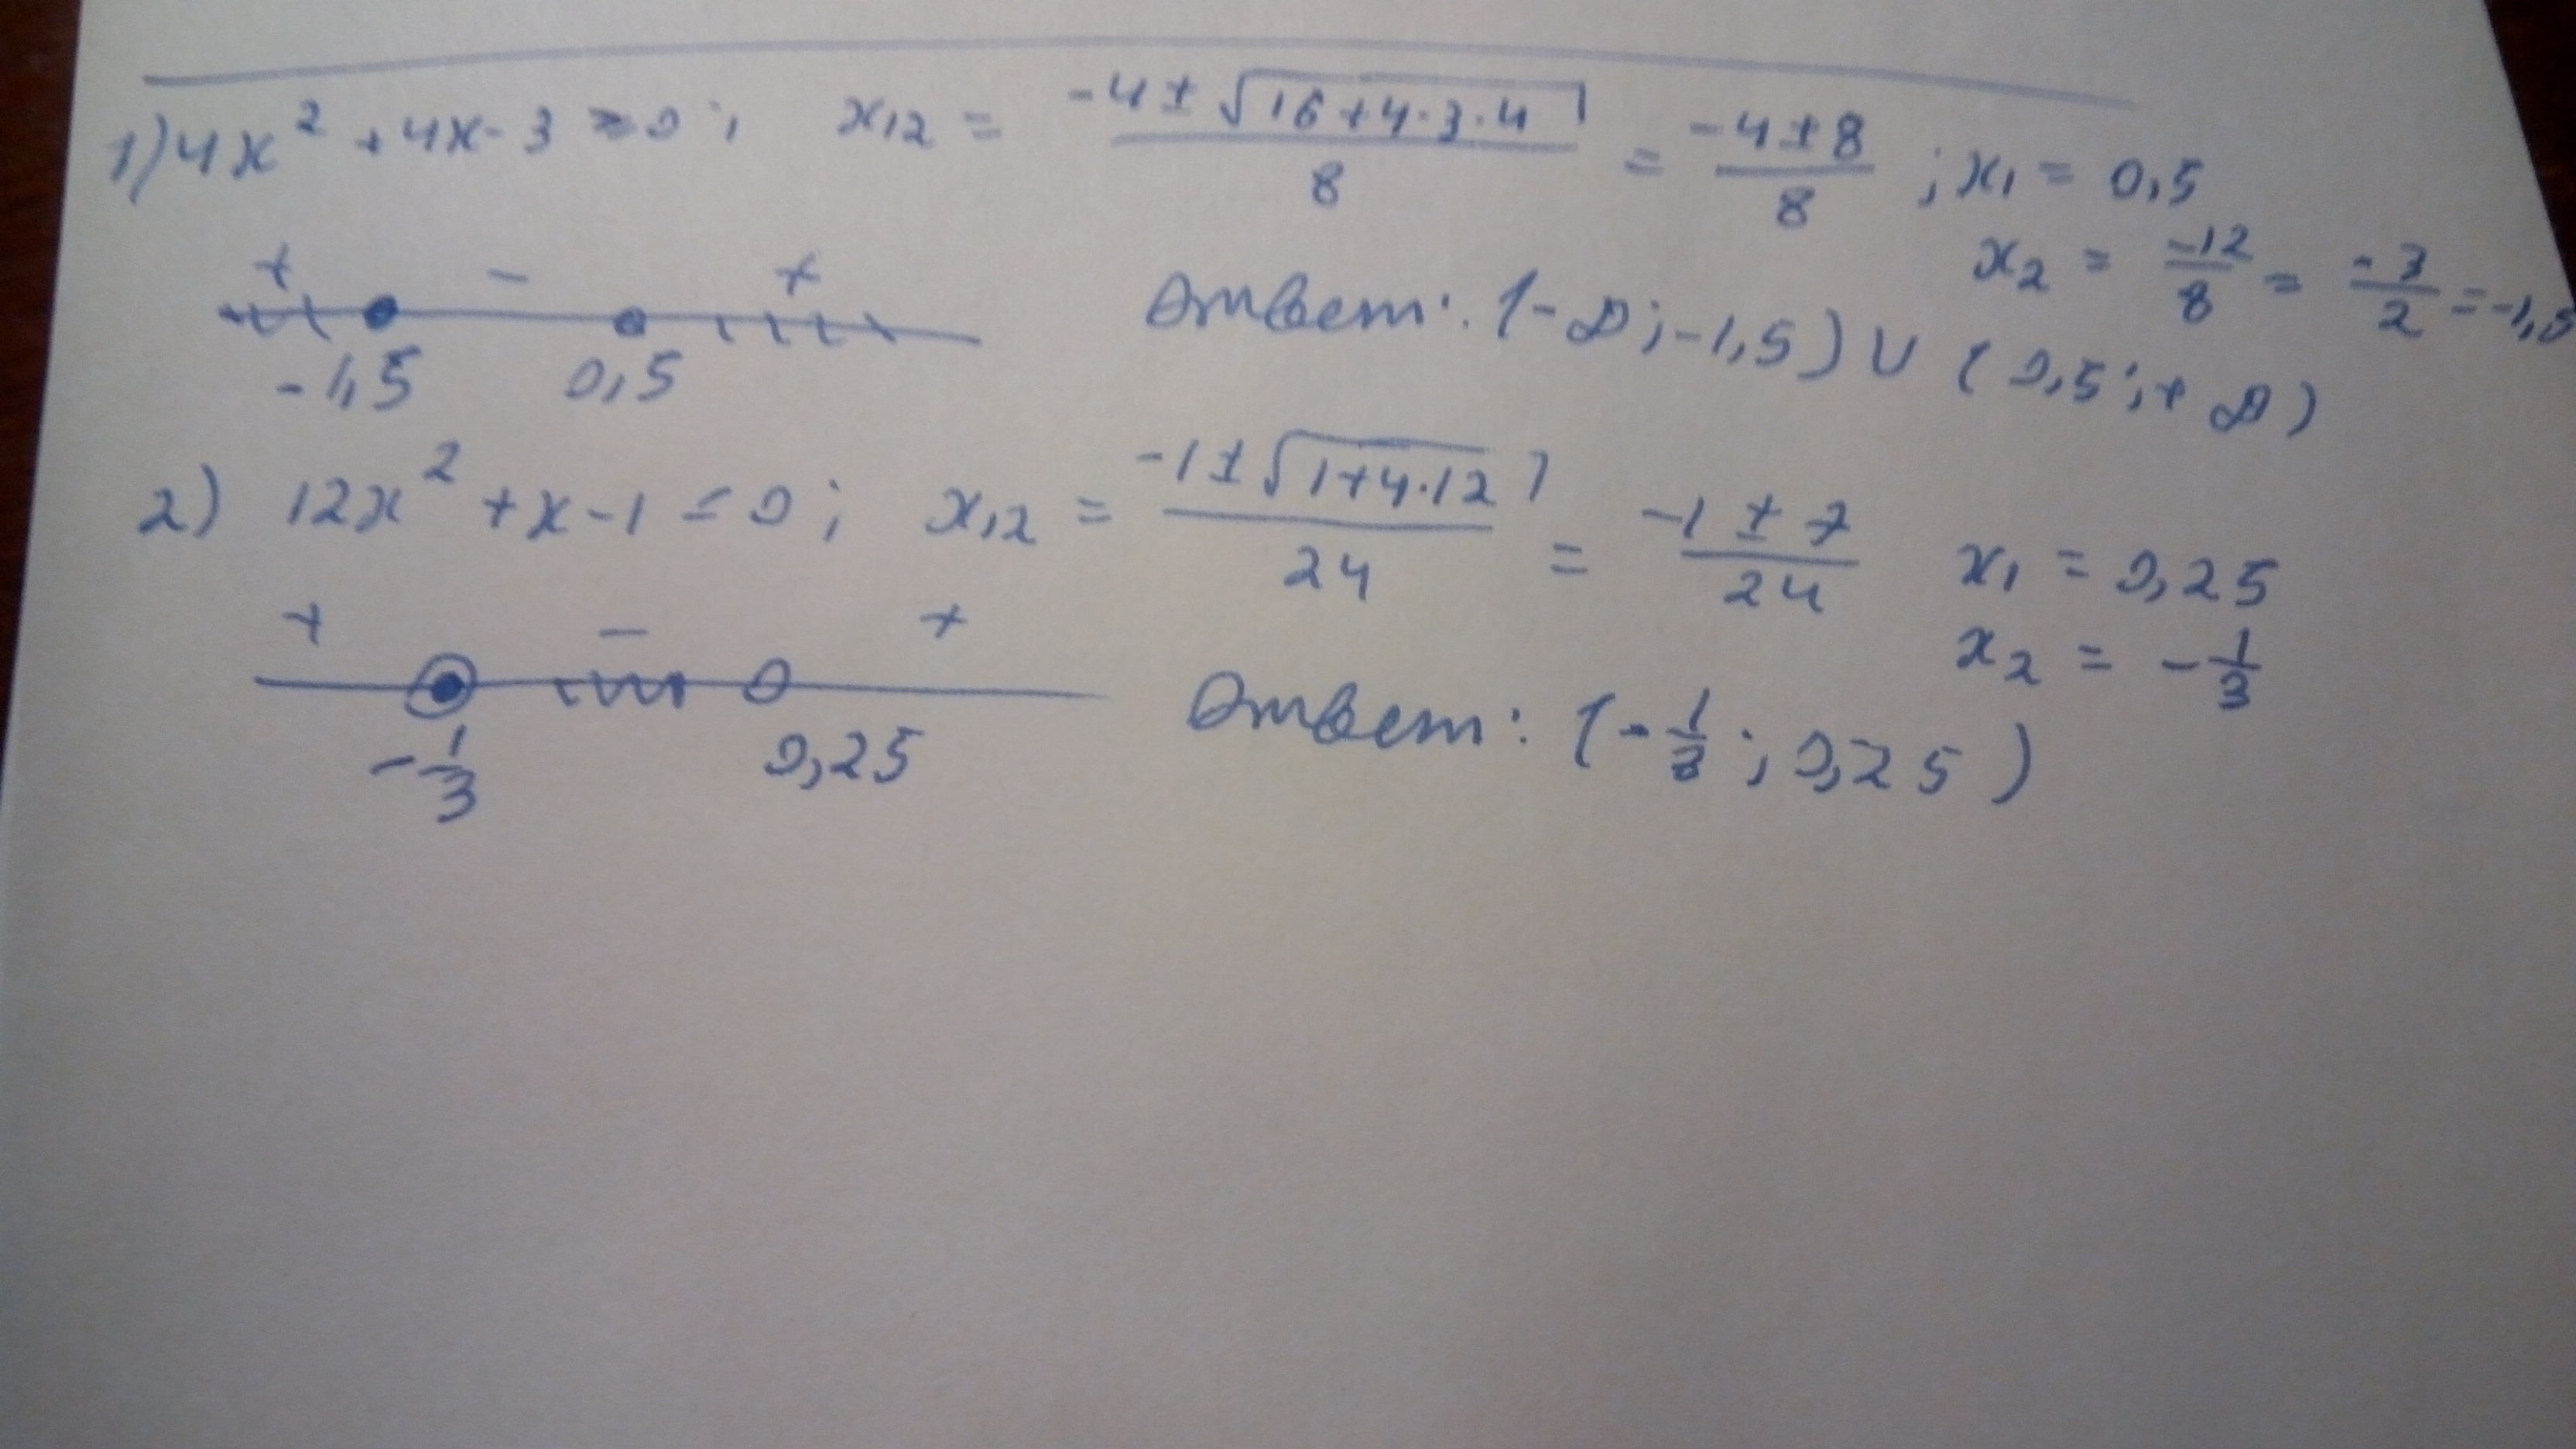 1) 4x² + 4x - 3 = 0 ; x₁,₂ = (-4 ± √(16 + 4·3·4)) / 8 = (-4 ± 8) / 8 ; x₁ = 0,5
x₂ = -12/8 = -3/2 = -1,5
+ - +
-1,5 0,5
Ответ: (-∞; -1,5) ∪ (0,5; +∞)
2) 12x² + x - 1 = 0 ; x₁,₂ = (-1 ± √(1 + 4·12)) / 24 = (-1 ± 7) / 24 x₁ = 0,25
x₂ = -1/3
+ - +
-1/3 0,25
Ответ: (-1/3; 0,25)